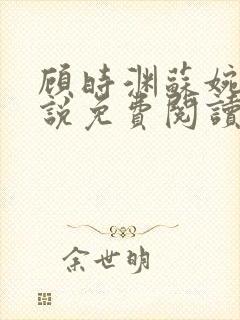 顾時渊蘇婉
說免費閱讀
余世明